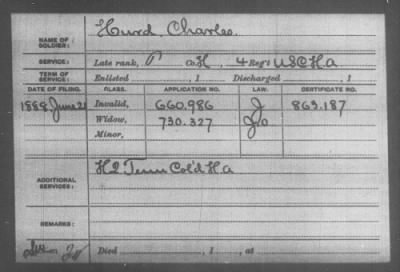 NAME OF SOLDIER: Hurd, Charles.
SERVICE: Late rank, P Co. H, 4 Reg't USCHa
TERM OF SERVICE: Enlisted , 1 Discharged , 1
DATE OF FILING. CLASS. APPLICATION NO. LAW. CERTIFICATE NO.
1888, June 21 Invalid, 660.986 J 863.187
Widow, 730.327
Minor,
ADDITIONAL SERVICES: H 2 Tenn Col'd Ha
REMARKS:
Died , 1 , at